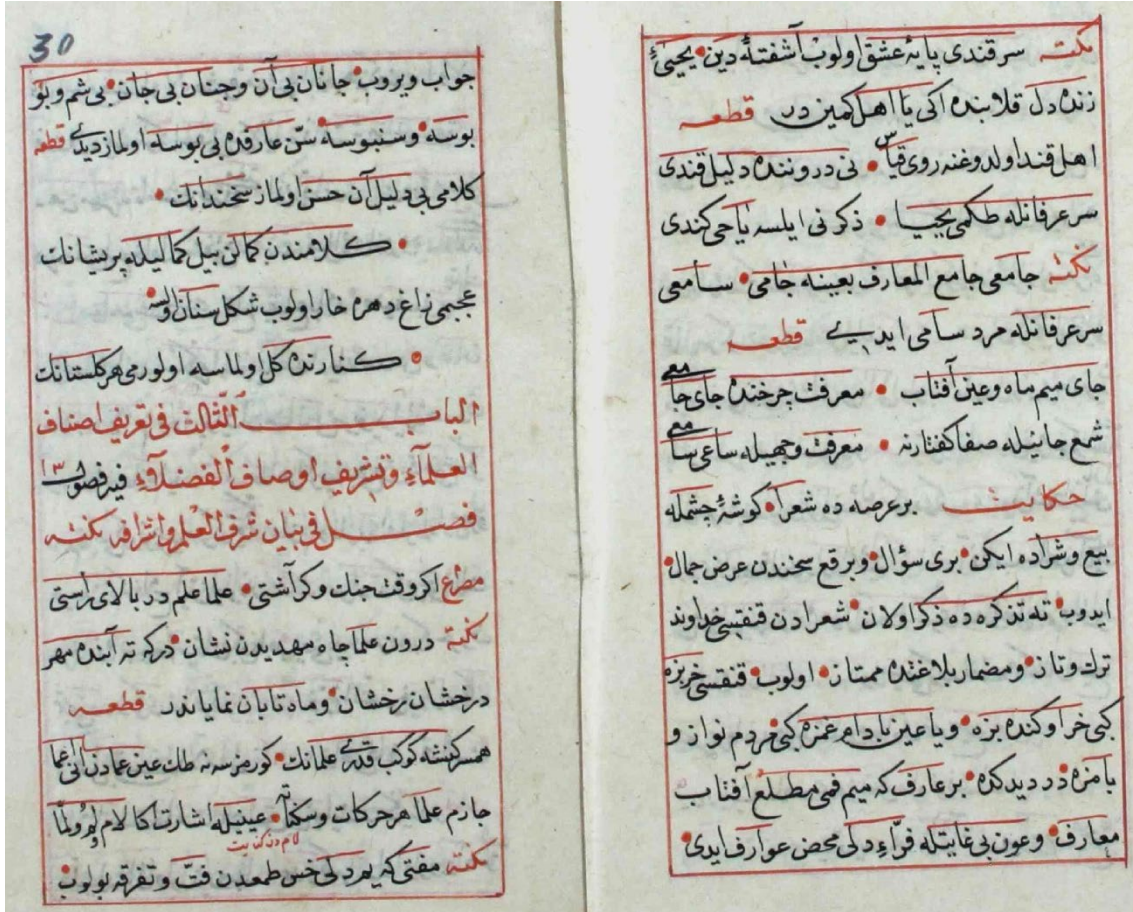 نكته سرقندی پایۀ عشق اولوب آشفتۀ دین • یحییٔ
زنده دل قلابنده اکی یا اهل کمین در قطعه
اهل قند اولدوغنه روی قیاس • نی دروننده دلیل قندی
سر عرفانله طکمی یحییا • ذکر نی ایلسه یا حی کندی
نكته جامعی جامع المعارف بعینه جامی • سامعی
سر عرفانله مرد سامی ایدیی قطعه
جای میم ماه وعین آفتاب • معرفت چرخنده جای جامعی
شمع جانیله صفا کفتارنه • معرفت وجهیله ساعی سامعی
حکایت بر عرصه ده شعرا • کوشۀ چشمله
بیع وشراده ایکن • بری سؤال • وبرقع سخندن عرض جمال •
ایدوب • ته تذکره ده ذکر اولان • شعرادن قنقیسی خداوند
ترك وتاز • ومضمار بلاغتده ممتاز • اولوب • قنقیسی خربزه
کبی خراوکنده بزه • ویا عین بادام غمزه کبی مردم نواز و
بامزه در دیدکده • بر عارف که میم فمی مطلع آفتاب
معارف • وعون بی غایتله فرّاء دلی محض عوارف ایدی •
30
جواب ویروب • جانان بی آن وجنان بی جان • بی شم وبو
بوسه • وسنبوسه • سن عارفده بی بوسه اولماز دیدی قطعه
کلامی بی دلیل آن حسن اولماز سخندانك •
• کلامندن کمالن بیل کمالیله پریشانك
عجبمی زاغ دهره خار اولوب شکل سنان اولسه
• کنارنده کل اولماسه اولورمی هر کلستانك
الباب الثالث فی تعریف اصناف
العلمآء وتشریف اوصاف الفضلآء فیه فصول ١٣
فصل فی بیان شرف العلم واشرافه نكته
مصراع اکر وقت جنك وکر آشتی • علما علم در بالای راستی
نكته درون علما چاه مهدیدن نشان • درکه ته آبنده مهر
درخشان رخشان • وماه تابان نمایاندر قطعه
همسر کنشه کوکب قدری علمانك • کورمزسه نه طك عین عمادن انی اعما
جازم علما هر حرکات وسکناته • عینیله اشارت اکا لام لم ولمّا
نكته مفتی که یم دلی خس طمعدن فتّ وتفرقه بولوب